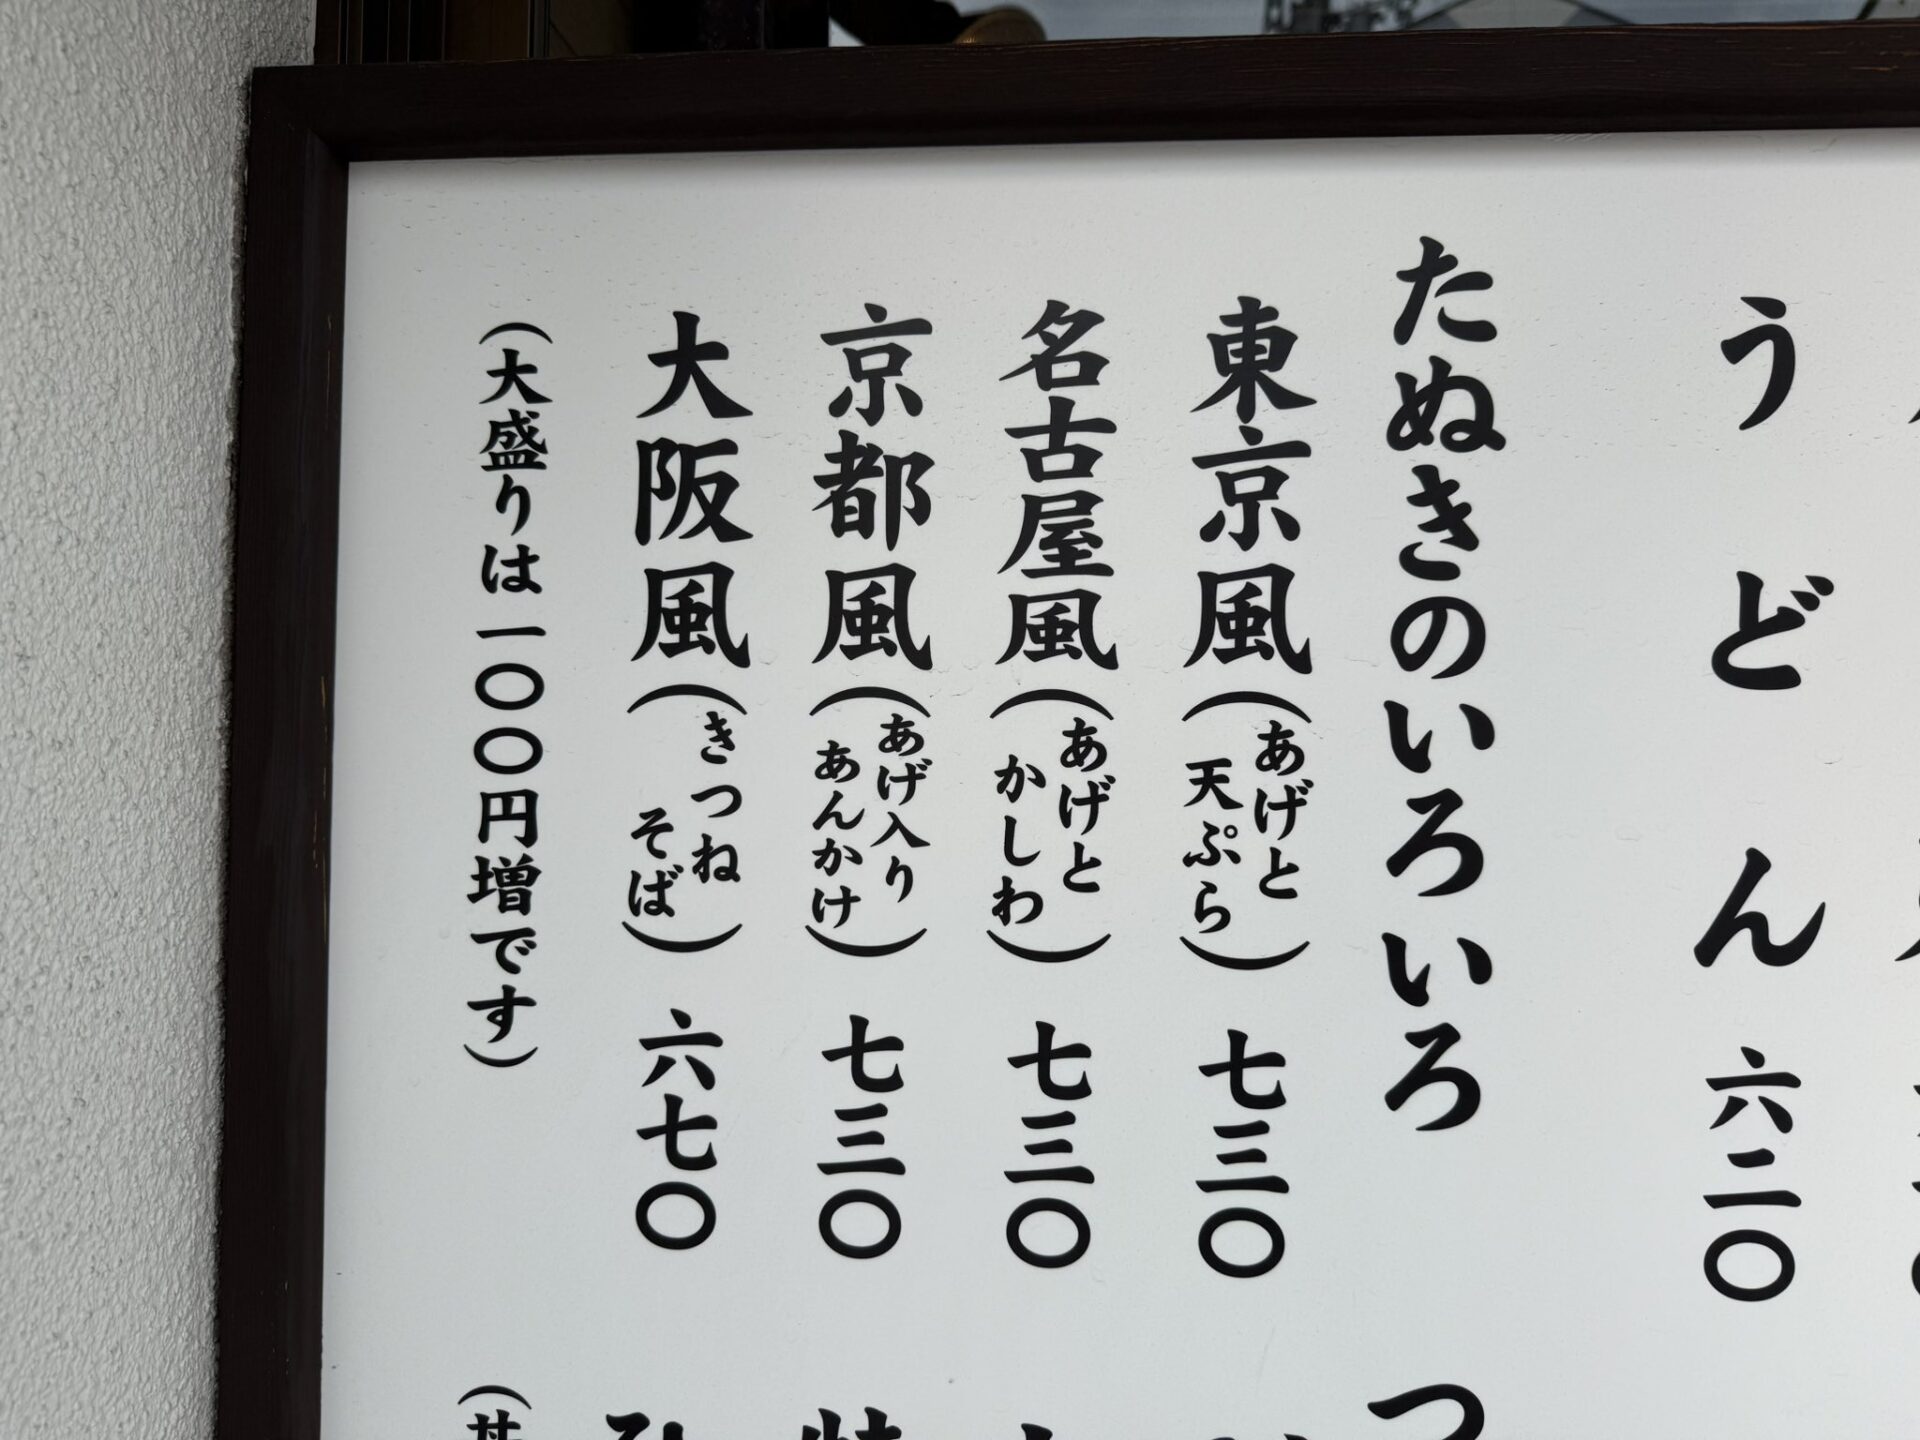 うどん 六二〇
たぬきのいろいろ
東京風(あげと天ぷら) 七三〇
名古屋風(あげとかしわ) 七三〇
京都風(あげ入りあんかけ) 七三〇
大阪風(きつねそば) 六七〇
(大盛りは一〇〇円増です)
つ